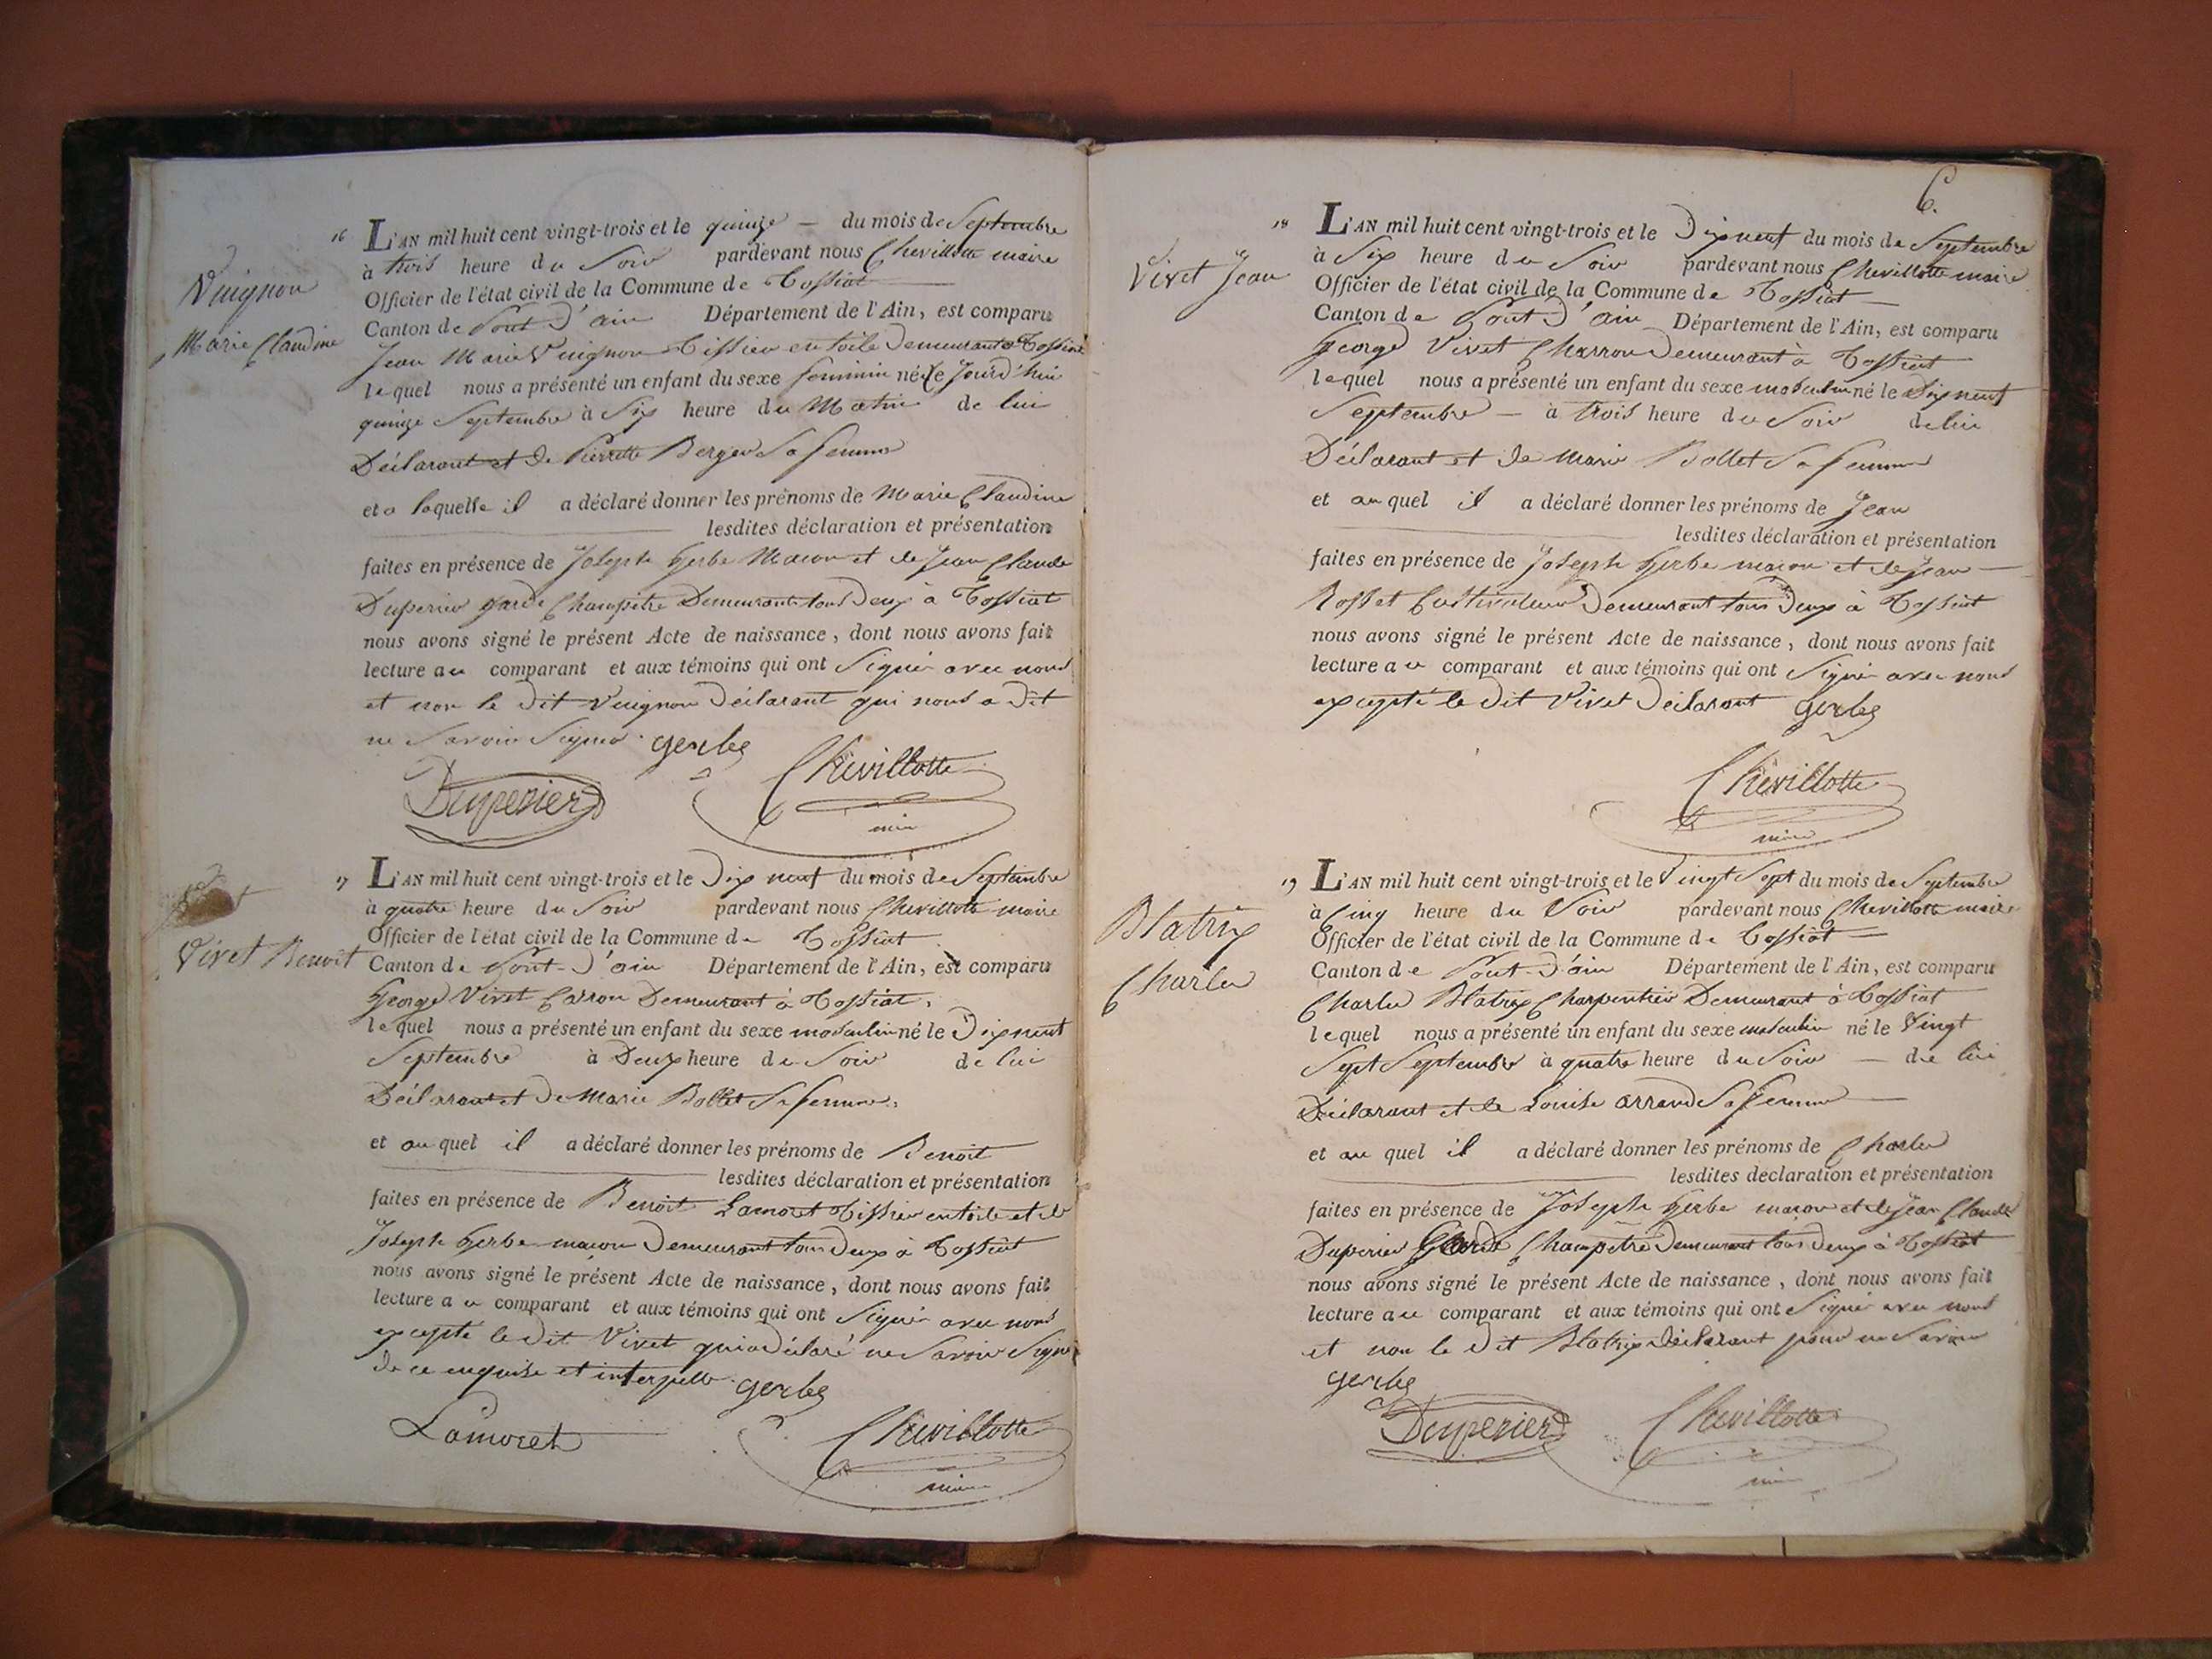 16 L'AN mil huit cent vingt-trois et le quinze — du mois de Septembre
à trois heure du Soir pardevant nous Chevillotte maire
Officier de l'état civil de la Commune de Tossiat
Canton de Pont d'ain Département de l'Ain, est comparu
Vuignon
Marie Claudine
Jean Marie Vuignon Tissier en toile Demeurant a Tossiat
lequel nous a présenté un enfant du sexe feminin née Ce Jourd'hui
quinze Septembre à Six heure du Matin de lui
Déclarant et de Pierrette Berger Sa femme
et a laquelle il a déclaré donner les prénoms de Marie Claudine
lesdites déclaration et présentation
faites en présence de Joseph Gerbe Macon et de Jean Claude
Duperier garde Champêtre Demeurant tous Deux à Tossiat
nous avons signé le présent Acte de naissance, dont nous avons fait
lecture au comparant et aux témoins qui ont Signé avec nous
et non le Dit Vuignon Déclarant qui nous a Dit
ne Savoir Signer. gerbe
Duperier Chevillotte
maire
17 L'AN mil huit cent vingt-trois et le Dix neuf du mois de Septembre
à quatre heure du Soir pardevant nous Chevillotte maire
Officier de l'état civil de la Commune de Tossiat
Vivet Benoit
Canton de Pont-d'ain Département de l'Ain, est comparu
George Vivet Carron Demeurant à Tossiat,
lequel nous a présenté un enfant du sexe masculin né le Dix neuf
Septembre à Deux heure du Soir de lui
Déclarant et De Marie Bollet Sa femme,
et au quel il a déclaré donner les prénoms de Benoit
lesdites déclaration et présentation
faites en présence de Benoit Lamoret Tissier en toile et de
Joseph Gerbe macon Demeurant tous Deux à Tossiat
nous avons signé le présent Acte de naissance, dont nous avons fait
lecture au comparant et aux témoins qui ont Signé avec nous
excepté le Dit Vivet qui a Déclaré ne Savoir Signer
de ce enquise et interpellé. gerbe
Lamoret Chevillotte
maire
6.
18 L'AN mil huit cent vingt-trois et le Dix neuf du mois de Septembre
à Six heure du Soir pardevant nous Chevillotte maire
Vivet Jean
Officier de l'état civil de la Commune de Tossiat —
Canton de Pont D'ain Département de l'Ain, est comparu
George Vivet Charron Demeurant à Tossiat
lequel nous a présenté un enfant du sexe masculin né le Dix neuf
Septembre — à trois heure du Soir de lui
Déclarant et de Marie Bollet Sa femme
et au quel il a déclaré donner les prénoms de Jean
lesdites déclaration et présentation
faites en présence de Joseph Gerbe macon et de Jean —
Rosset Cultivateur Demeurant tous Deux à Tossiat
nous avons signé le présent Acte de naissance, dont nous avons fait
lecture au comparant et aux témoins qui ont Signé avec nous
excepté le Dit Vivet Déclarant gerbe
Chevillotte
maire
19 L'AN mil huit cent vingt-trois et le Vingt Sept du mois de Septembre
à Cinq heure du Soir pardevant nous Chevillotte maire
Blatrix
Charles
Officier de l'état civil de la Commune de Tossiat —
Canton de Pont-d'ain Département de l'Ain, est comparu
Charles Blatrix Charpentier Demeurant à Tossiat
lequel nous a présenté un enfant du sexe masculin né le Vingt
Sept Septembre à quatre heure du Soir — de lui
Déclarant et de Louise arrand Sa femme —
et au quel il a déclaré donner les prénoms de Charles
lesdites declaration et présentation
faites en présence de Joseph Gerbe macon et de Jean Claude
Duperier Garde Champêtre Demeurant tous Deux à Tossiat
nous avons signé le présent Acte de naissance, dont nous avons fait
lecture au comparant et aux témoins qui ont Signé avec nous
et non le Dit Blatrix Déclarant pour ne Savoir
gerbe
Duperier Chevillotte
maire